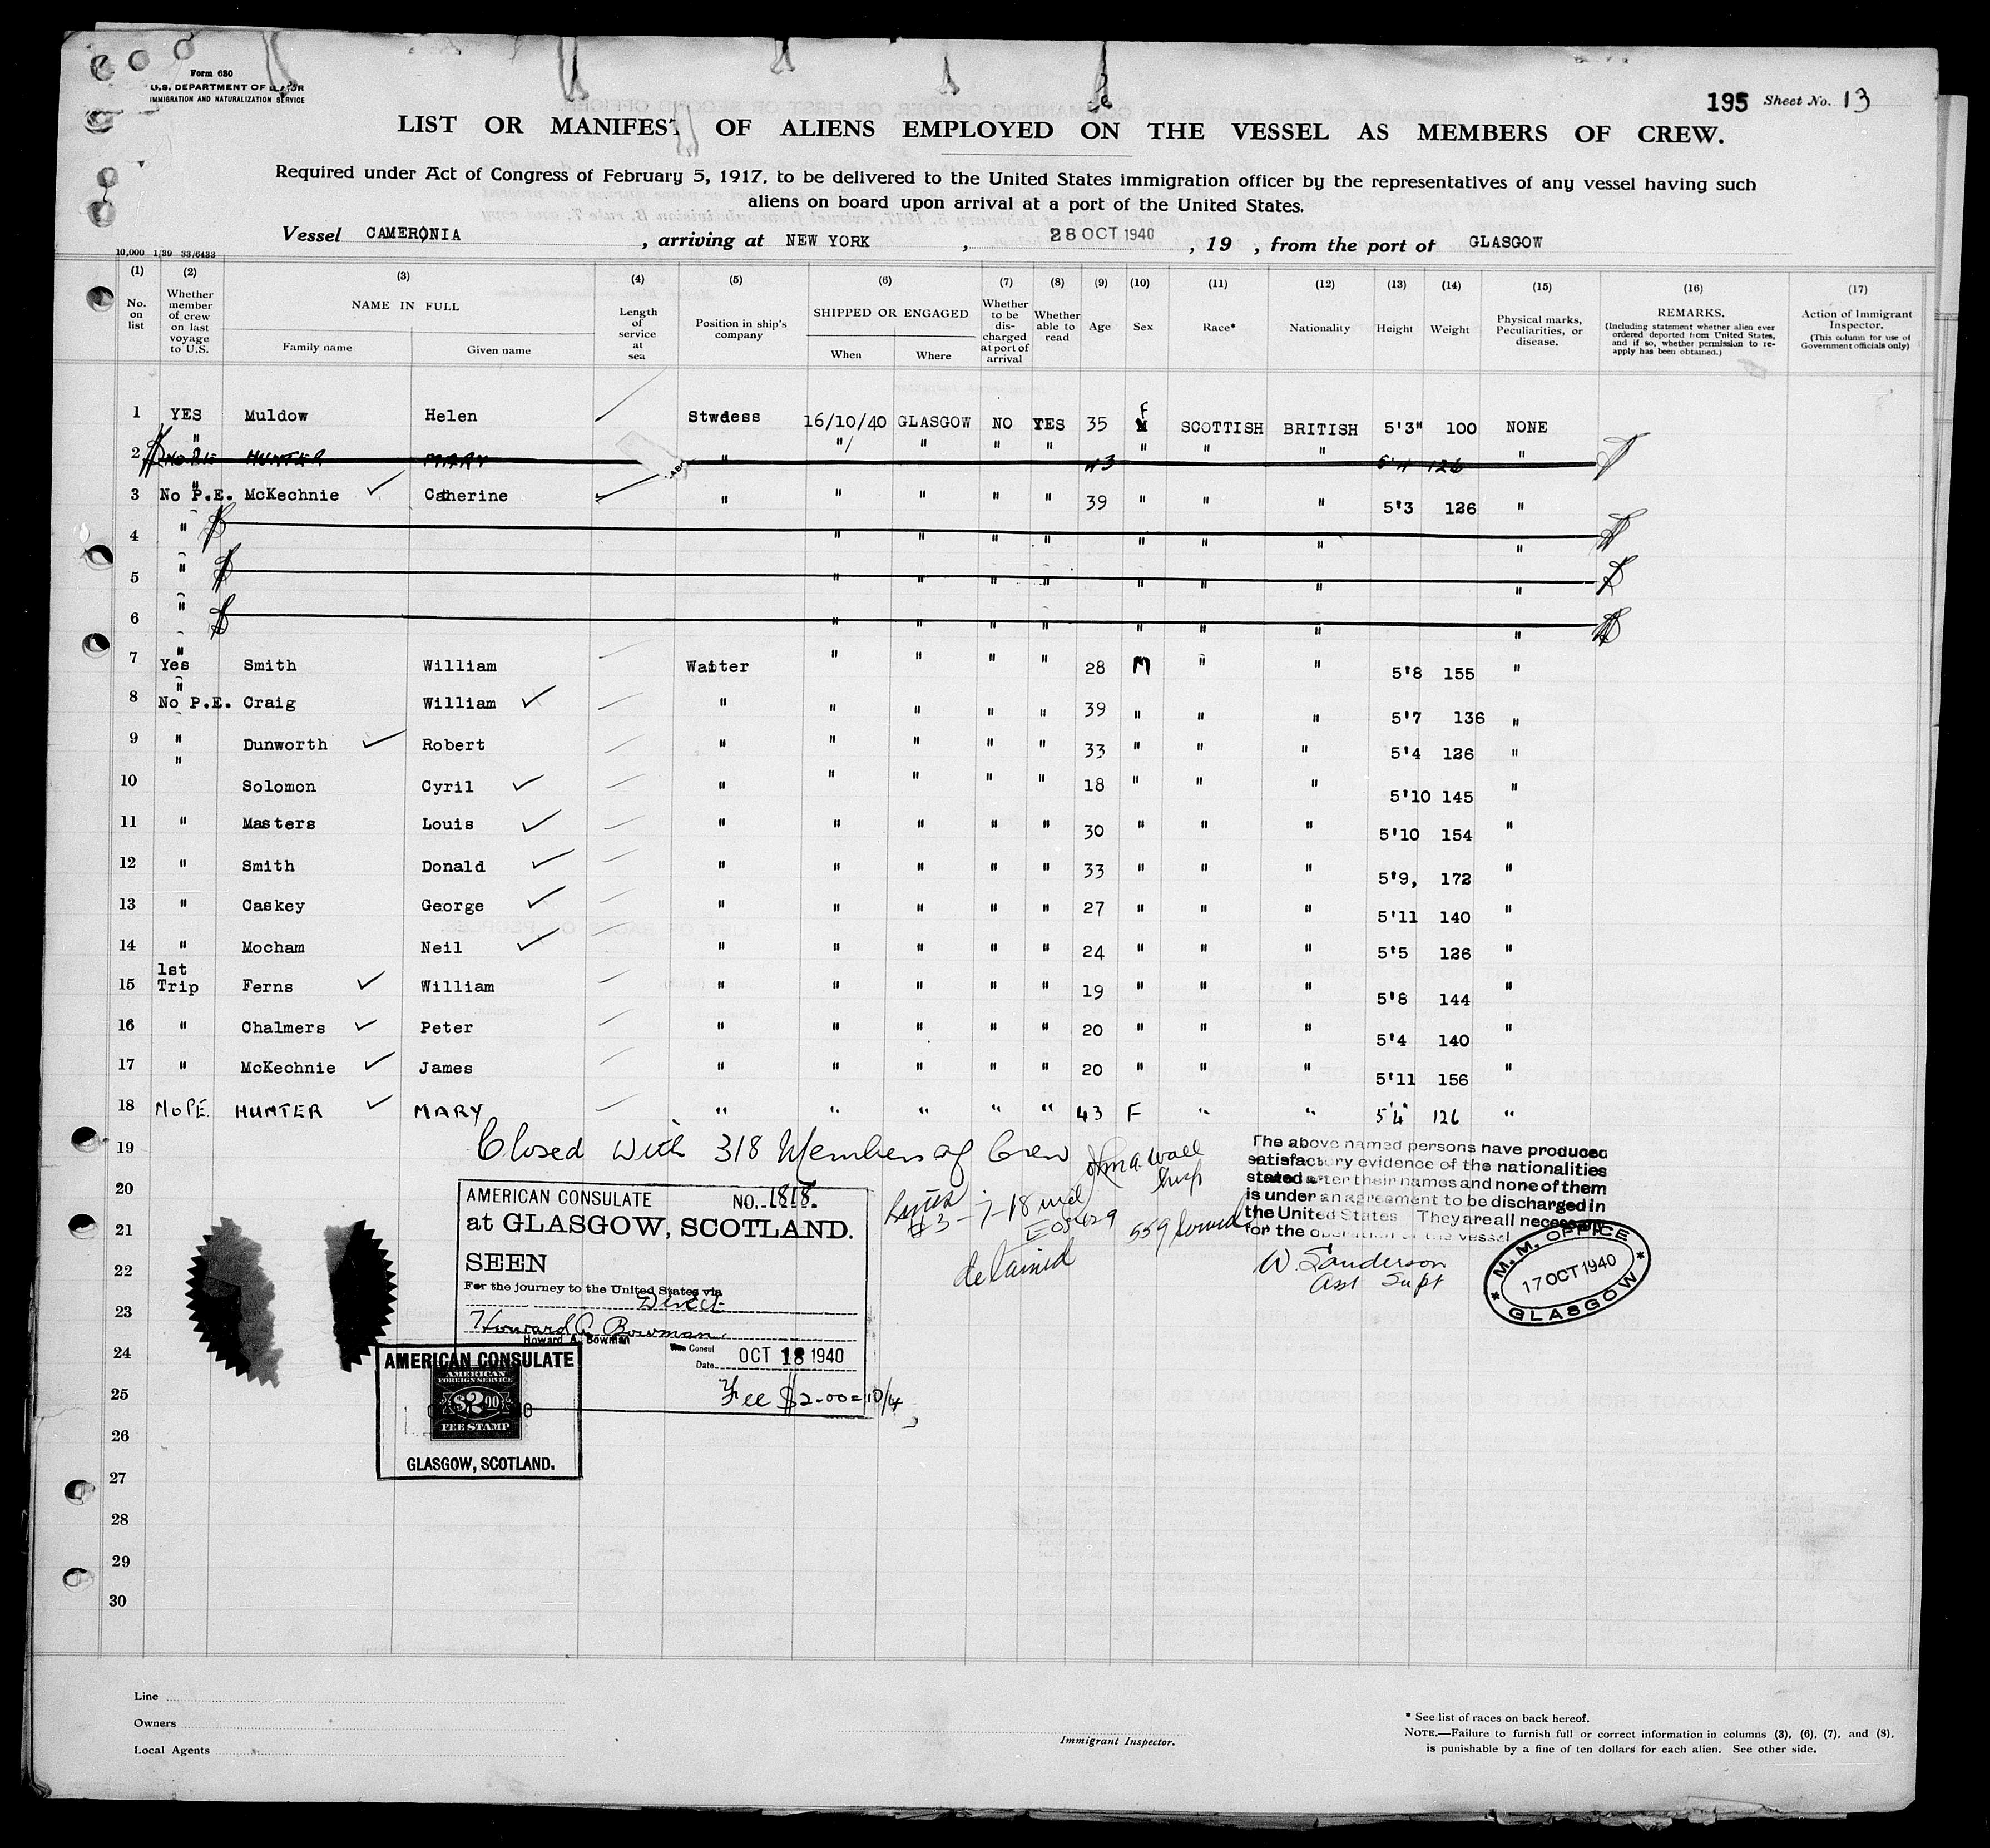 Form 680
U.S. DEPARTMENT OF LABOR
IMMIGRATION AND NATURALIZATION SERVICE
195 Sheet No. 13
LIST OR MANIFEST OF ALIENS EMPLOYED ON THE VESSEL AS MEMBERS OF CREW.
Required under Act of Congress of February 5, 1917, to be delivered to the United States immigration officer by the representatives of any vessel having such
aliens on board upon arrival at a port of the United States.
Vessel CAMERONIA, arriving at NEW YORK, 28 OCT 1940, 19 , from the port of GLASGOW
10,000 1/39 33/6433
(1) (2) (3) (4) (5) (6) (7) (8) (9) (10) (11) (12) (13) (14) (15) (16) (17)
No. on list
Whether member of crew on last voyage to U.S.
NAME IN FULL
Family name
Given name
Length of service at sea
Position in ship's company
SHIPPED OR ENGAGED
When
Where
Whether to be discharged at port of arrival
Whether able to read
Age
Sex
Race*
Nationality
Height
Weight
Physical marks, Peculiarities, or disease.
REMARKS.
(Including statement whether alien ever ordered deported from United States, and if so, whether permission to re-apply has been obtained.)
Action of Immigrant Inspector.
(This column for use of Government officials only)
1 YES Muldow Helen Stwdess 16/10/40 GLASGOW NO YES 35 f SCOTTISH BRITISH 5'3" 100 NONE
2 " No P.E HUNTER MARY " " " " " 43 " " " 5'4 126 "
3 " No P.E. McKechnie Catherine " " " " " 39 " " " 5'3 126 "
4 " " " " " " " " "
5 " " " " " " " " "
6 " " " " " " " " "
7 " Yes Smith William Waiter " " " " 28 M " " 5'8 155 "
8 " No P.E. Craig William " " " " " 39 " " " 5'7 136 "
9 " Dunworth Robert " " " " " 33 " " " 5'4 126 "
10 " Solomon Cyril " " " " " 18 " " " 5'10 145 "
11 " Masters Louis " " " " " 30 " " " 5'10 154 "
12 " Smith Donald " " " " " 33 " " " 5'9, 172 "
13 " Caskey George " " " " " 27 " " " 5'11 140 "
14 " Mocham Neil " " " " " 24 " " " 5'5 126 "
15 1st Trip Ferns William " " " " " 19 " " " 5'8 144 "
16 " Chalmers Peter " " " " " 20 " " " 5'4 140 "
17 " McKechnie James " " " " " 20 " " " 5'11 156 "
18 No P.E. HUNTER MARY " " " " " 43 F " " 5'4" 126 "
19 Closed with 318 Members of Crew
20
21
22
23
24
25
26
27
28
29
30
#3-7-18
detained
AMERICAN CONSULATE NO. 1818.
at GLASGOW, SCOTLAND.
SEEN
For the journey to the United States via
Direct
Howard A. Bowman
Howard A. Bowman
Consul
Date OCT 18 1940
Fee $2.00 = 10/4
AMERICAN CONSULATE
AMERICAN
FOREIGN SERVICE
$2.00
FEE STAMP
GLASGOW, SCOTLAND.
The above named persons have produced
satisfactory evidence of the nationalities
stated after their names and none of them
is under an agreement to be discharged in
the United States They are all necessary
for the operation of the vessel
W. Sanderson
Asst Supt
M.M. OFFICE
17 OCT 1940
* GLASGOW *
Line
Owners
Local Agents
Immigrant Inspector.
* See list of races on back hereof.
NOTE.—Failure to furnish full or correct information in columns (3), (6), (7), and (8),
is punishable by a fine of ten dollars for each alien. See other side.